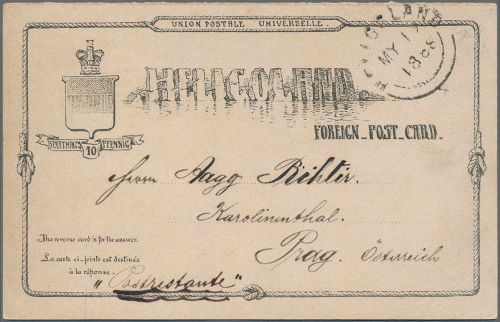 UNION POSTALE UNIVERSELLE.
HELIGOLAND
HELIGOLAND
MY 17
1888
FOREIGN_POST_CARD.
FARTHINGS 10 PFENNIG
Herrn Aagg Richter.
Karolinenthal.
Prag. Österreich
The reverse card is for the answer.
La carte ci-jointe est destinée
à la réponse.
"Postrestante"